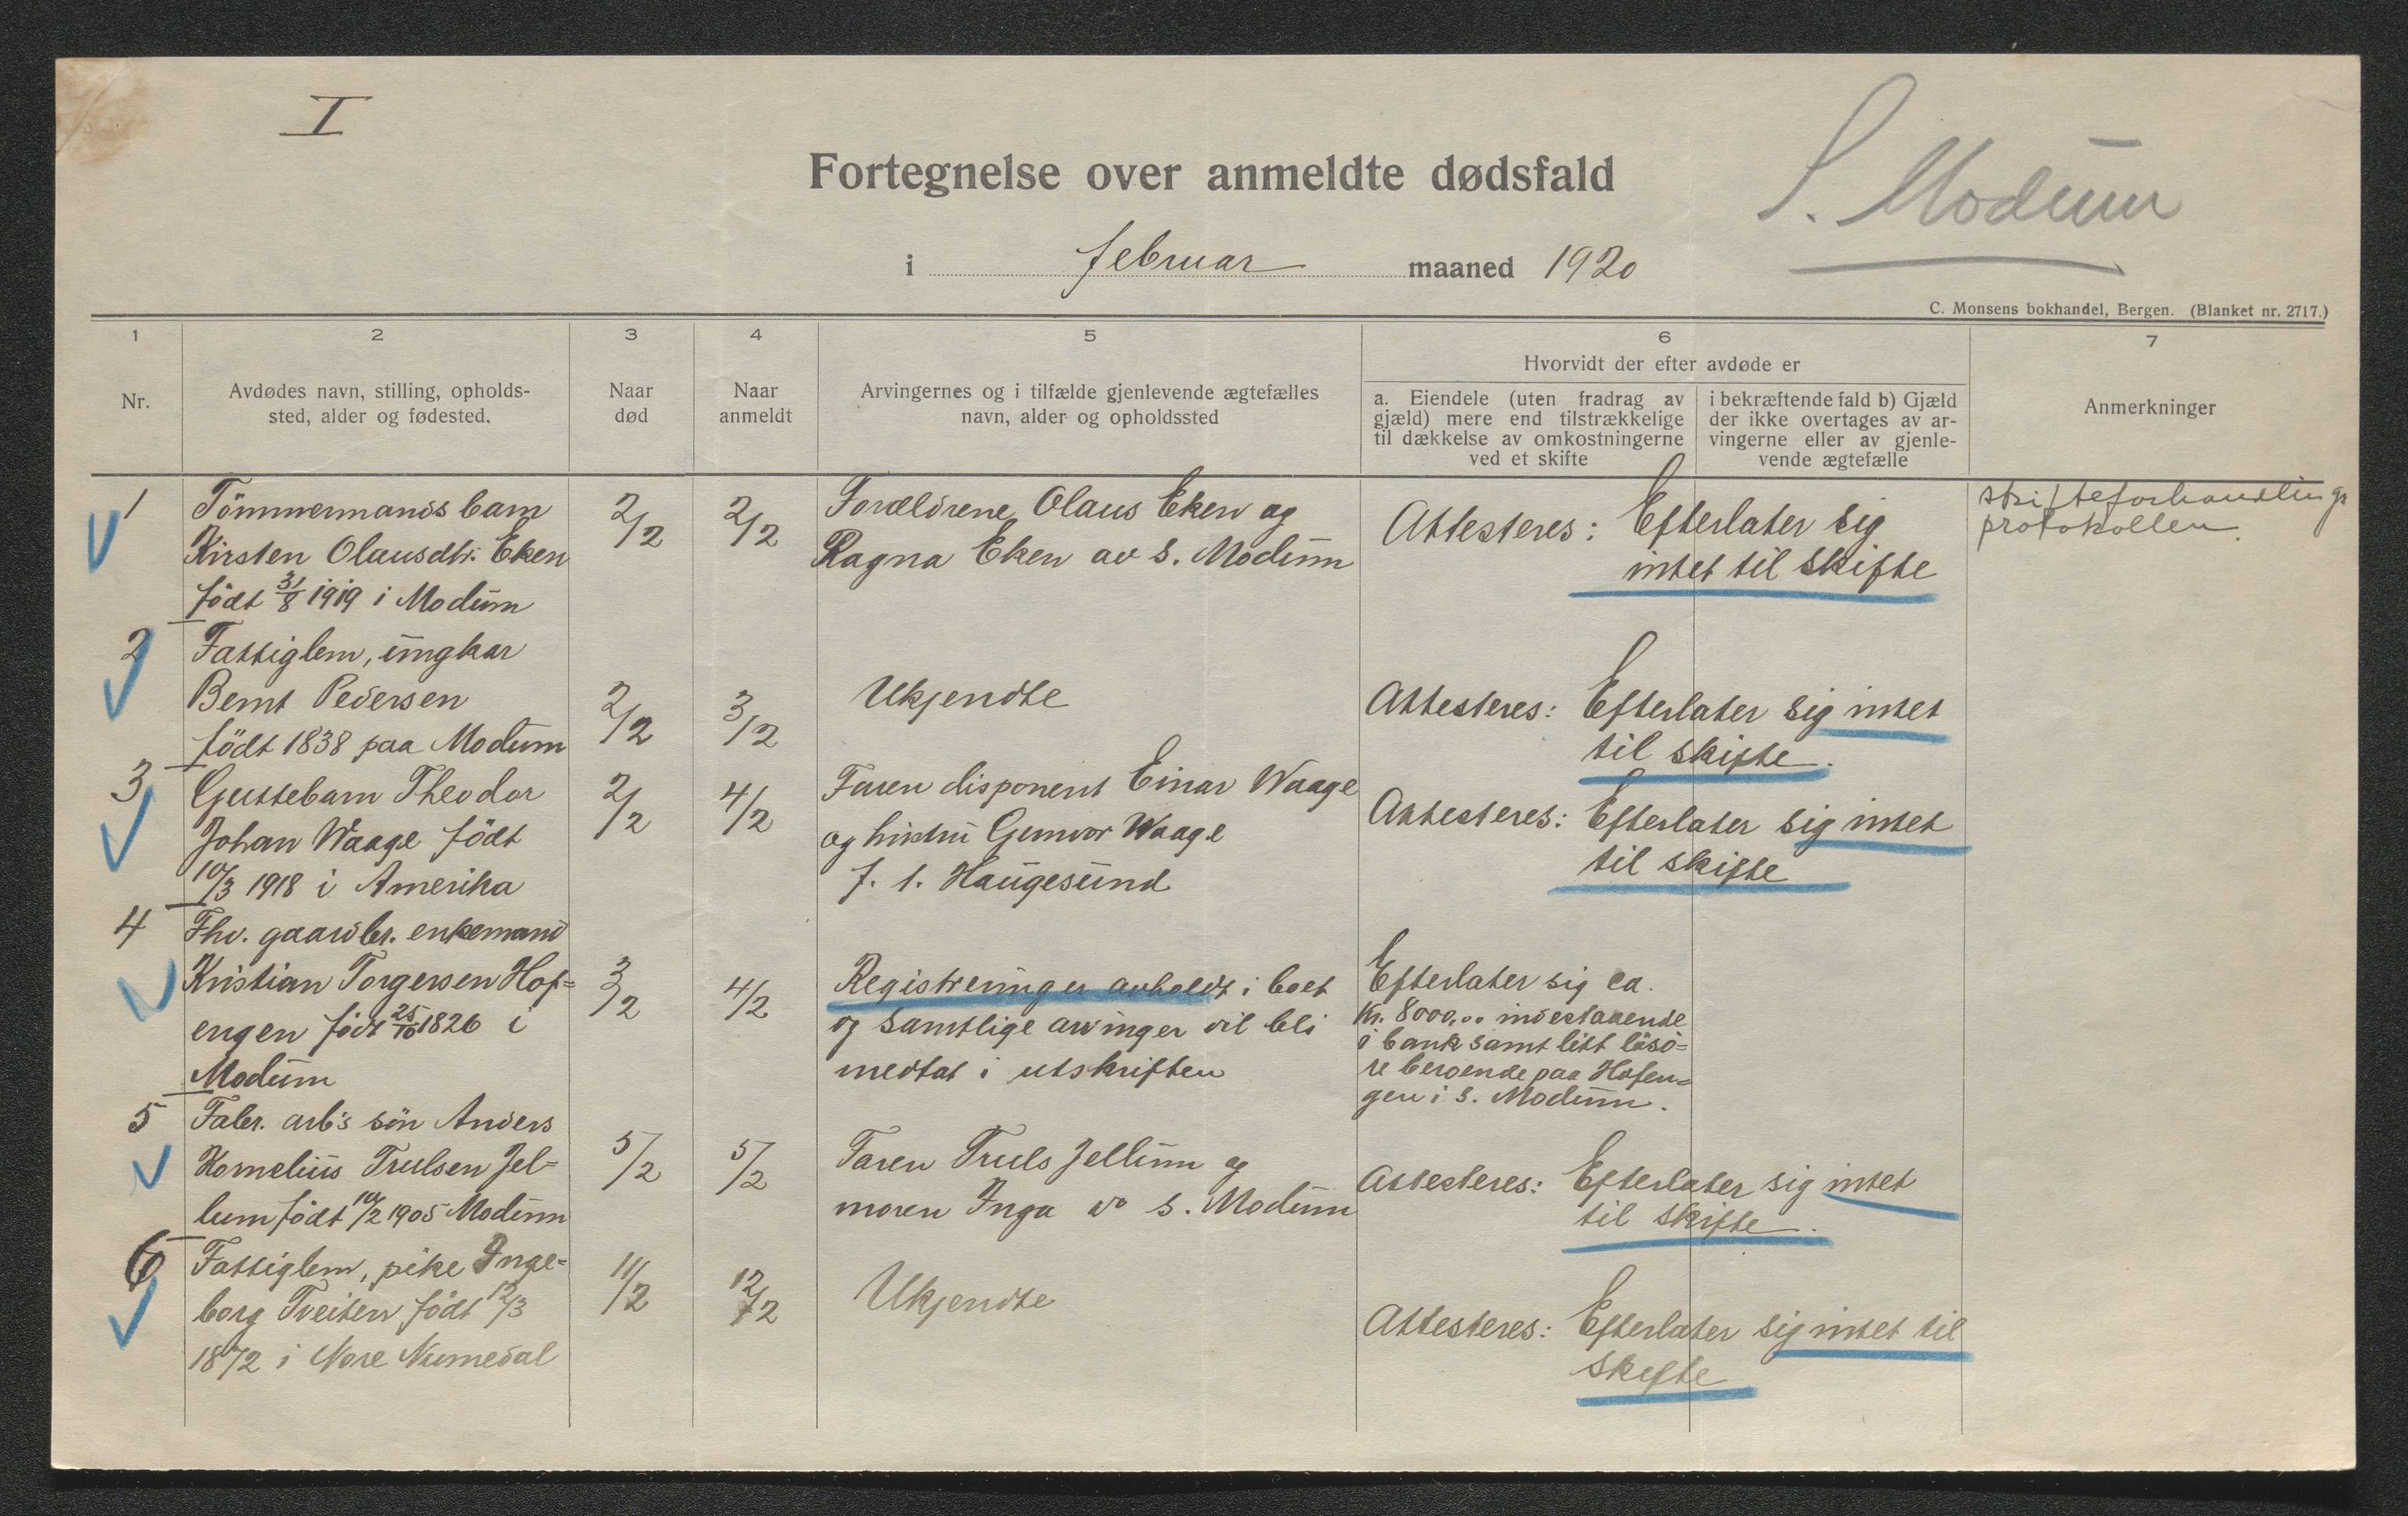 I
S. Modum
Fortegnelse over anmeldte dødsfald
i februar maaned 1920
C. Monsens bokhandel, Bergen. (Blanket nr. 2717.)
1
Nr.
2
Avdødes navn, stilling, opholds-
sted, alder og fødested.
3
Naar
død
4
Naar
anmeldt
5
Arvingernes og i tilfælde gjenlevende ægtefælles
navn, alder og opholdssted
6
Hvorvidt der efter avdøde er
a. Eiendele (uten fradrag av
gjæld) mere end tilstrækkelige
til dækkelse av omkostningerne
ved et skifte
i bekræftende fald b) Gjæld
der ikke overtages av ar-
vingerne eller av gjenle-
vende ægtefælle
7
Anmerkninger
1
Tömmermands barn
Kirsten Olausdtr. Eken
født 31/8 1919 i Modum
2/2
2/2
Forældrene Olaus Eken og
Ragna Eken av S. Modum
Attesteres: Efterlater sig
intet til skifte
skifteforhandlings
protokollen.
2
Fattiglem, ungkar
Bernt Pedersen
født 1838 paa Modum
2/2
3/2
Ukjendte
Attesteres: Efterlater sig intet
til skifte.
3
Guttebarn Theodor
Johan Waage født
10/3 1918 i Amerika
2/2
4/2
Faren disponent Einar Waage
og hustru Gunvor Waage
f. t. Haugesund
Attesteres: Efterlater sig intet
til skifte
4
Fhv. gaardbr. enkemand
Kristian Torgersen Hof=
engen født 25/10 1826 i
Modum
3/2
4/2
Registreringer avholdt i boet
og samtlige arvinger vil bli
medtat i utskriften
Efterlater sig ca.
Kr. 8000,00 indestaaende
i bank samt litt løsø=
re beroende paa Hofen=
gen i S. Modum.
5
Fabr. arb's sön Anders
Kornelius Trulsen Jel=
lum født 10/2 1905 Modum
5/2
5/2
Faren Truls Jellum og
moren Inga do S. Modum
Attesteres: Efterlater sig intet
til skifte.
6
Fattiglem, pike Inge=
borg Tveiten født 12/3
1872 i Nore Numedal
11/2
12/2
Ukjendte
Attesteres: Efterlater sig intet til
skifte